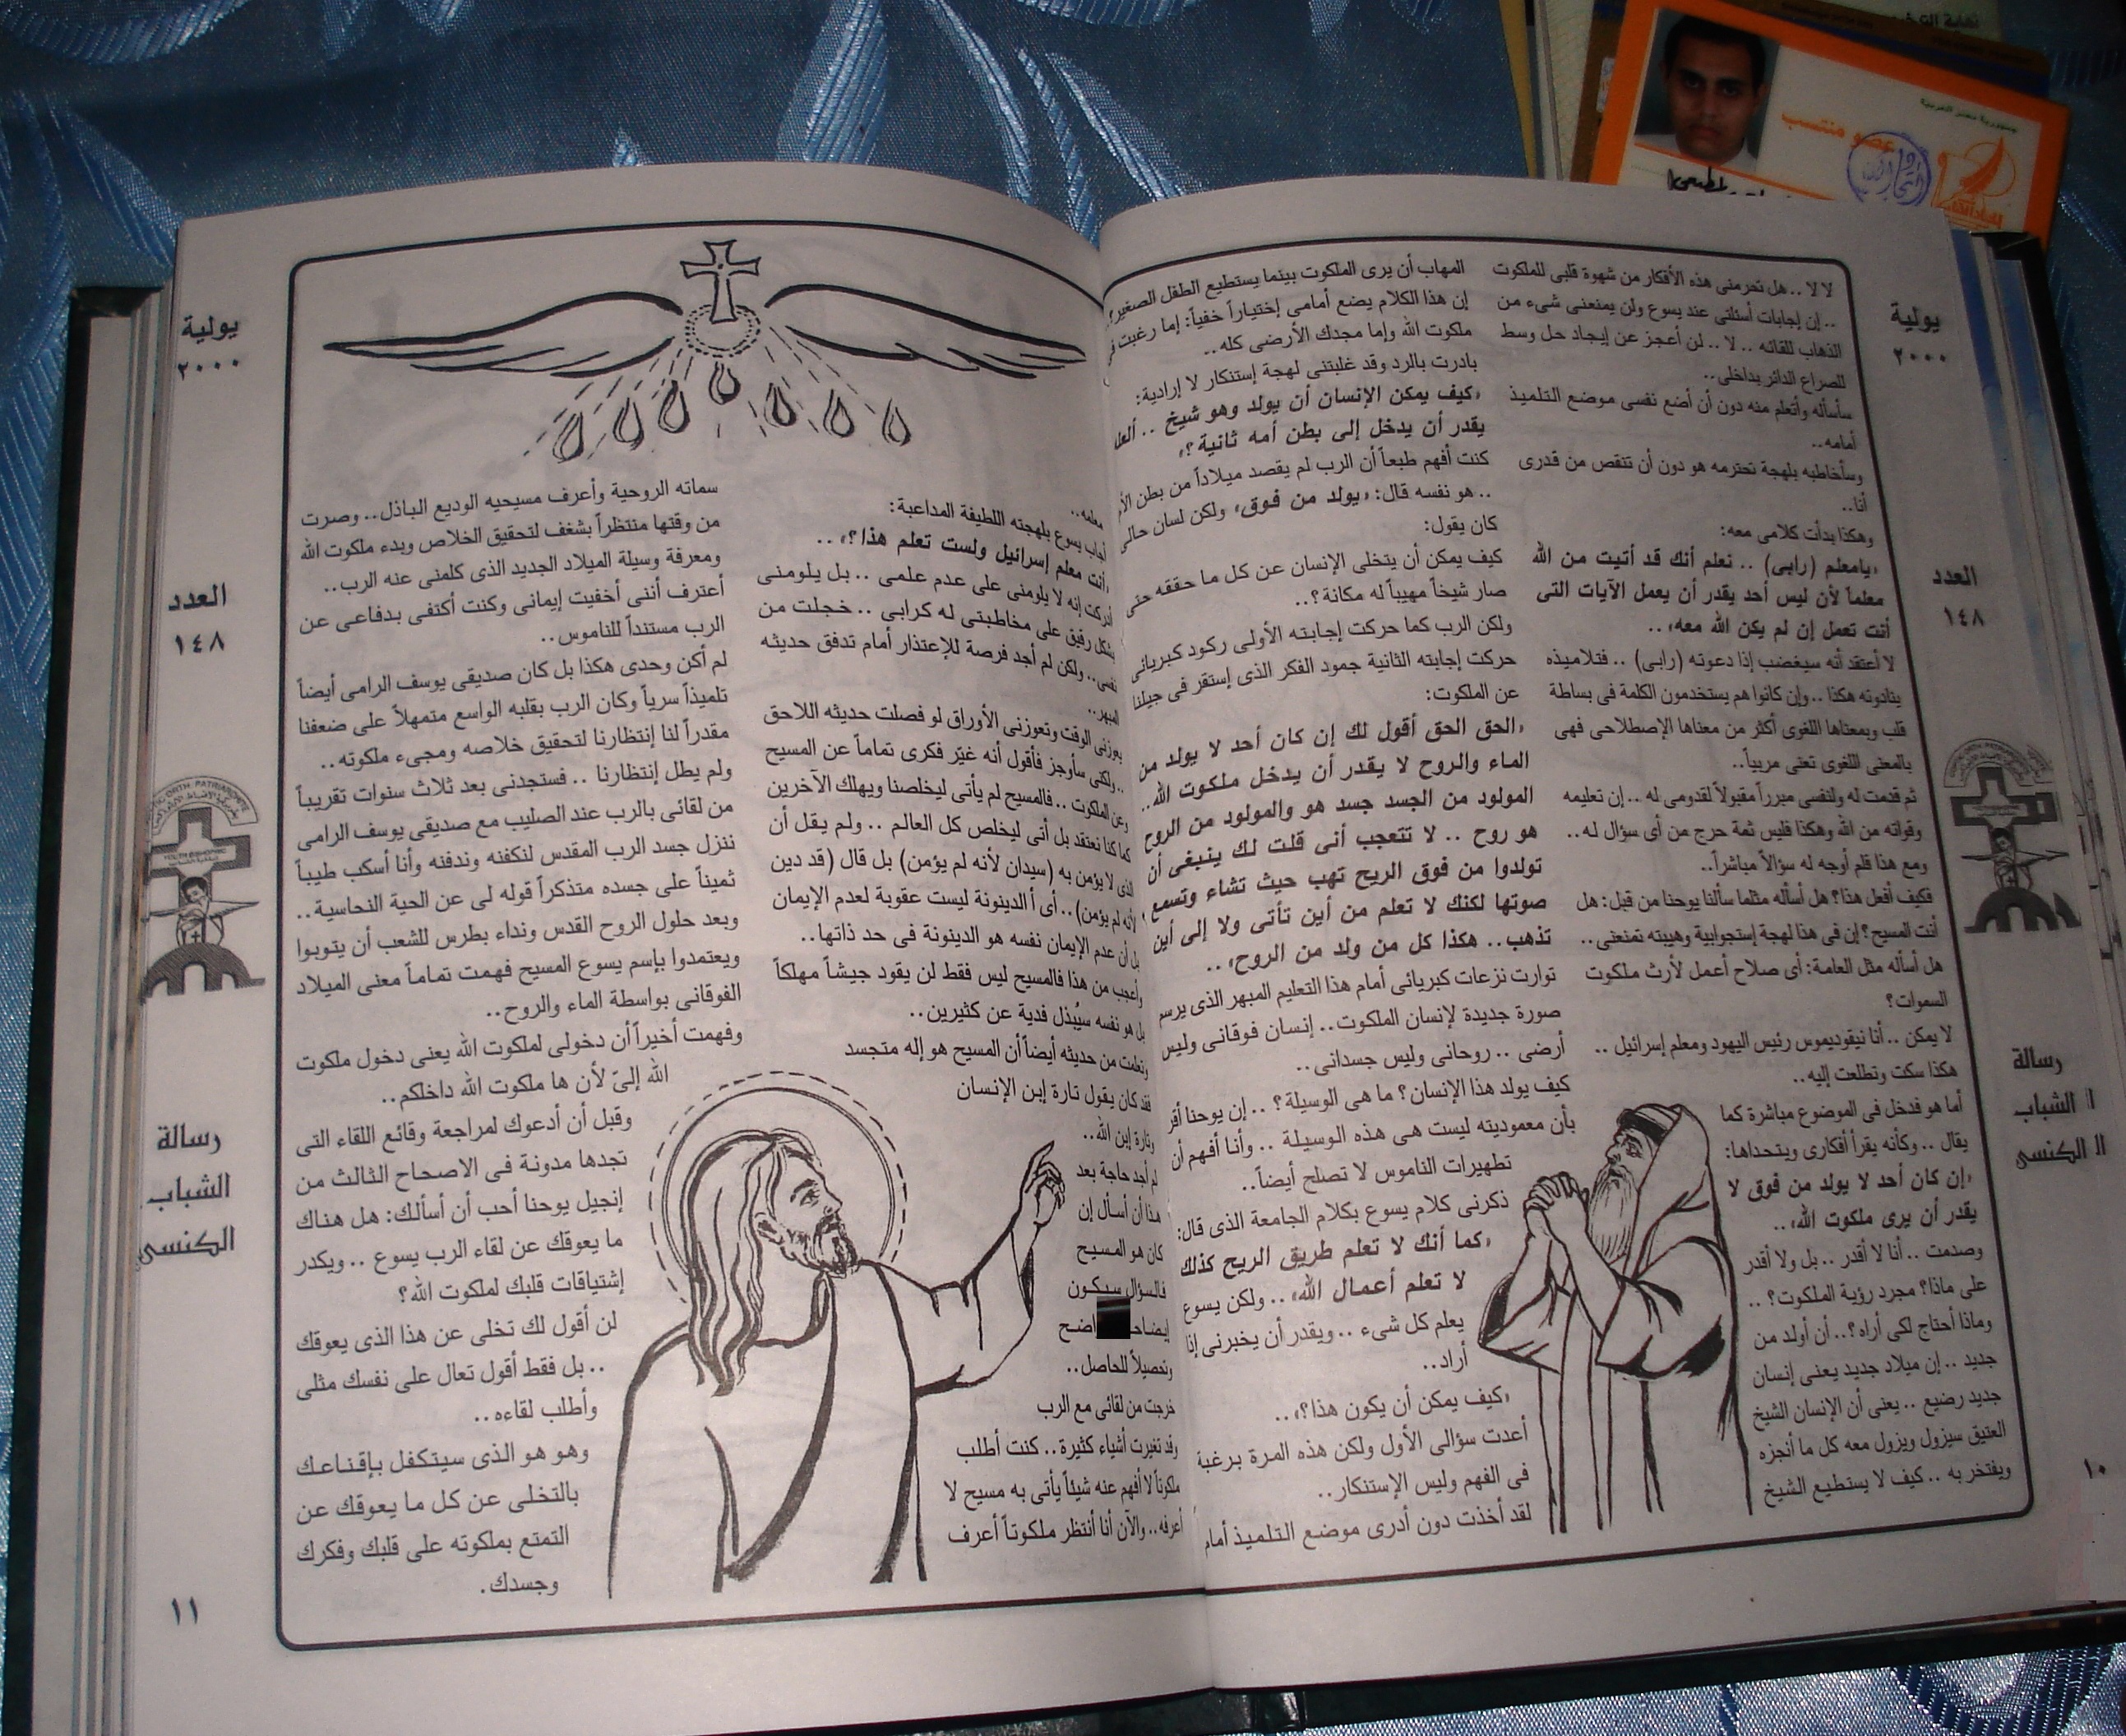 يولية
٢٠٠٠
العدد
١٤٨
رسالة
الشباب
الكنسى
١٠
لا لا .. هل تحرمنى هذه الأفكار من شهوة قلبى للملكوت
.. إن إجابات أسئلتى عند يسوع ولن يمنعنى شىء من
الذهاب للقائه .. لا .. لن أعجز عن إيجاد حل وسط
للصراع الدائر بداخلى ..
سأسأله وأتعلم منه دون أن أضع نفسى موضع التلميذ
أمامه ..
وسأخاطبه بلهجة تحترمه هو دون أن تنقص من قدرى
أنا ..
وهكذا بدأت كلامى معه:
«يامعلم (رابى) .. نعلم أنك قد أتيت من الله
معلماً لأن ليس أحد يقدر أن يعمل الآيات التى
أنت تعمل إن لم يكن الله معه» ..
لا أعتقد أنه سيغضب إذا دعوته (رابى) .. فتلاميذه
ينادونه هكذا .. وإن كانوا هم يستخدمون الكلمة فى بساطة
قلب وبمعناها اللغوى أكثر من معناها الإصطلاحى فهى
بالمعنى اللغوى تعنى مربياً ..
ثم قدمت له ولنفسى مبرراً مقبولاً لقدومى له .. إن تعليمه
وقواته من الله وهكذا فليس ثمة حرج من أى سؤال له ..
ومع هذا فلم أوجه له سؤالاً مباشراً ..
فكيف أفعل هذا؟ هل أسأله مثلما سألنا يوحنا من قبل: هل
أنت المسيح؟ إن فى هذا لهجة إستجوابية وهيبته تمنعنى ..
هل أسأله مثل العامة: أى صلاح أعمل لأرث ملكوت
السموات؟
لا يمكن .. أنا نيقوديموس رئيس اليهود ومعلم إسرائيل ..
هكذا سكت وتطلعت إليه ..
أما هو فدخل فى الموضوع مباشرة كما
يقال .. وكأنه يقرأ أفكارى ويتحداها:
«إن كان أحد لا يولد من فوق لا
يقدر أن يرى ملكوت الله» ..
وصدمت .. أنا لا أقدر .. بل ولا أقدر
على ماذا؟ مجرد رؤية الملكوت؟ ..
وماذا أحتاج لكى أراه؟ .. أن أولد من
جديد .. إن ميلاد جديد يعنى إنسان
جديد رضيع .. يعنى أن الإنسان الشيخ
العتيق سيزول ويزول معه كل ما أنجزه
ويفتخر به .. كيف لا يستطيع الشيخ
المهاب أن يرى الملكوت بينما يستطيع الطفل الصغير؟
إن هذا الكلام يضع أمامى إختياراً خفياً: إما رغبت
ملكوت الله وإما مجدك الأرضى كله ..
بادرت بالرد وقد غلبتنى لهجة إستنكار لا إرادية:
«كيف يمكن الإنسان أن يولد وهو شيخ .. ألعل
يقدر أن يدخل إلى بطن أمه ثانية؟»
كنت أفهم طبعاً أن الرب لم يقصد ميلاداً من بطن
.. هو نفسه قال: «يولد من فوق» ولكن لسان حالى
كان يقول:
كيف يمكن أن يتخلى الإنسان عن كل ما حققه حتى
صار شيخاً مهيباً له مكانة؟ ..
ولكن الرب كما حركت إجابته الأولى ركود كبريائى
حركت إجابته الثانية جمود الفكر الذى إستقر فى جيلنا
عن الملكوت:
«الحق الحق أقول لك إن كان أحد لا يولد من
الماء والروح لا يقدر أن يدخل ملكوت الله ..
المولود من الجسد جسد هو والمولود من الروح
هو روح .. لا تتعجب أنى قلت لك ينبغى أن
تولدوا من فوق الريح تهب حيث تشاء وتسمع
صوتها لكنك لا تعلم من أين تأتى ولا إلى أين
تذهب .. هكذا كل من ولد من الروح» ..
توارت نزعات كبريائى أمام هذا التعليم المبهر الذى يرسم
صورة جديدة لإنسان الملكوت .. إنسان فوقانى وليس
أرضى .. روحانى وليس جسدانى ..
كيف يولد هذا الإنسان؟ ما هى الوسيلة؟ .. إن يوحنا أقر
بأن معموديته ليست هى هذه الوسيلة .. وأنا أفهم أن
تطهيرات الناموس لا تصلح أيضاً ..
ذكرنى كلام يسوع بكلام الجامعة الذى قال:
«كما أنك لا تعلم طريق الريح كذلك
لا تعلم أعمال الله» .. ولكن يسوع
يعلم كل شىء .. ويقدر أن يخبرنى إذا
أراد ..
«كيف يمكن أن يكون هذا؟» ..
أعدت سؤالى الأول ولكن هذه المرة برغبة
فى الفهم وليس الإستنكار ..
لقد أخذت دون أدرى موضع التلميذ أمام
معلمه ..
أجاب يسوع بلهجته اللطيفة المداعبة:
«أنت معلم إسرائيل ولست تعلم هذا؟» ..
أدركت إنه لا يلومنى على عدم علمى .. بل يلومنى
بشكل رقيق على مخاطبتى له كرابى .. خجلت من
نفسى .. ولكن لم أجد فرصة للإعتذار أمام تدفق حديثه
المبهر ..
يعوزنى الوقت وتعوزنى الأوراق لو فصلت حديثه اللاحق
.. ولكنى سأوجز فأقول أنه غيّر فكرى تماماً عن المسيح
وعن الملكوت .. فالمسيح لم يأتى ليخلصنا ويهلك الآخرين
كما كنا نعتقد بل أتى ليخلص كل العالم .. ولم يقل أن
الذى لا يؤمن به (سيدان لأنه لم يؤمن) بل قال (قد دين
لأنه لم يؤمن) .. أى أ الدينونة ليست عقوبة لعدم الإيمان
بل أن عدم الإيمان نفسه هو الدينونة فى حد ذاتها ..
وأعجب من هذا فالمسيح ليس فقط لن يقود جيشاً مهلكاً
بل هو نفسه سيُبذل فدية عن كثيرين ..
وتعلمت من حديثه أيضاً أن المسيح هو إله متجسد
فقد كان يقول تارة إبن الإنسان
وتارة إبن الله ..
لم أجد حاجة بعد
هذا أن أسأل إن
كان هو المسيح
فالسؤال سيكون
وتحصيلاً للحاصل ..
خرجت من لقائى مع الرب
وقد تغيرت أشياء كثيرة .. كنت أطلب
ملكوتاً لا أفهم عنه شيئاً يأتى به مسيح لا
أعرفه .. والآن أنا أنتظر ملكوتاً أعرف
سماته الروحية وأعرف مسيحيه الوديع الباذل .. وصرت
من وقتها منتظراً بشغف لتحقيق الخلاص وبدء ملكوت الله
ومعرفة وسيلة الميلاد الجديد الذى كلمنى عنه الرب ..
أعترف أننى أخفيت إيمانى وكنت أكتفى بدفاعى عن
الرب مستنداً للناموس ..
لم أكن وحدى هكذا بل كان صديقى يوسف الرامى أيضاً
تلميذاً سرياً وكان الرب بقلبه الواسع متمهلاً على ضعفنا
مقدراً لنا إنتظارنا لتحقيق خلاصه ومجىء ملكوته ..
ولم يطل إنتظارنا .. فستجدنى بعد ثلاث سنوات تقريباً
من لقائى بالرب عند الصليب مع صديقى يوسف الرامى
ننزل جسد الرب المقدس لنكفنه وندفنه وأنا أسكب طيباً
ثميناً على جسده متذكراً قوله لى عن الحية النحاسية ..
وبعد حلول الروح القدس ونداء بطرس للشعب أن يتوبوا
ويعتمدوا بإسم يسوع المسيح فهمت تماماً معنى الميلاد
الفوقانى بواسطة الماء والروح ..
وفهمت أخيراً أن دخولى لملكوت الله يعنى دخول ملكوت
الله إلىّ لأن ها ملكوت الله داخلكم ..
وقبل أن أدعوك لمراجعة وقائع اللقاء التى
تجدها مدونة فى الاصحاح الثالث من
إنجيل يوحنا أحب أن أسألك: هل هناك
ما يعوقك عن لقاء الرب يسوع .. ويكدر
إشتياقات قلبك لملكوت الله؟
لن أقول لك تخلى عن هذا الذى يعوقك
.. بل فقط أقول تعال على نفسك مثلى
وأطلب لقاءه ..
وهو هو الذى سيتكفل بإقناعك
بالتخلى عن كل ما يعوقك عن
التمتع بملكوته على قلبك وفكرك
وجسدك.
يولية
٢٠٠٠
العدد
١٤٨
رسالة
الشباب
الكنسى
١١
جمهورية مصر العربية
عضو منتسب